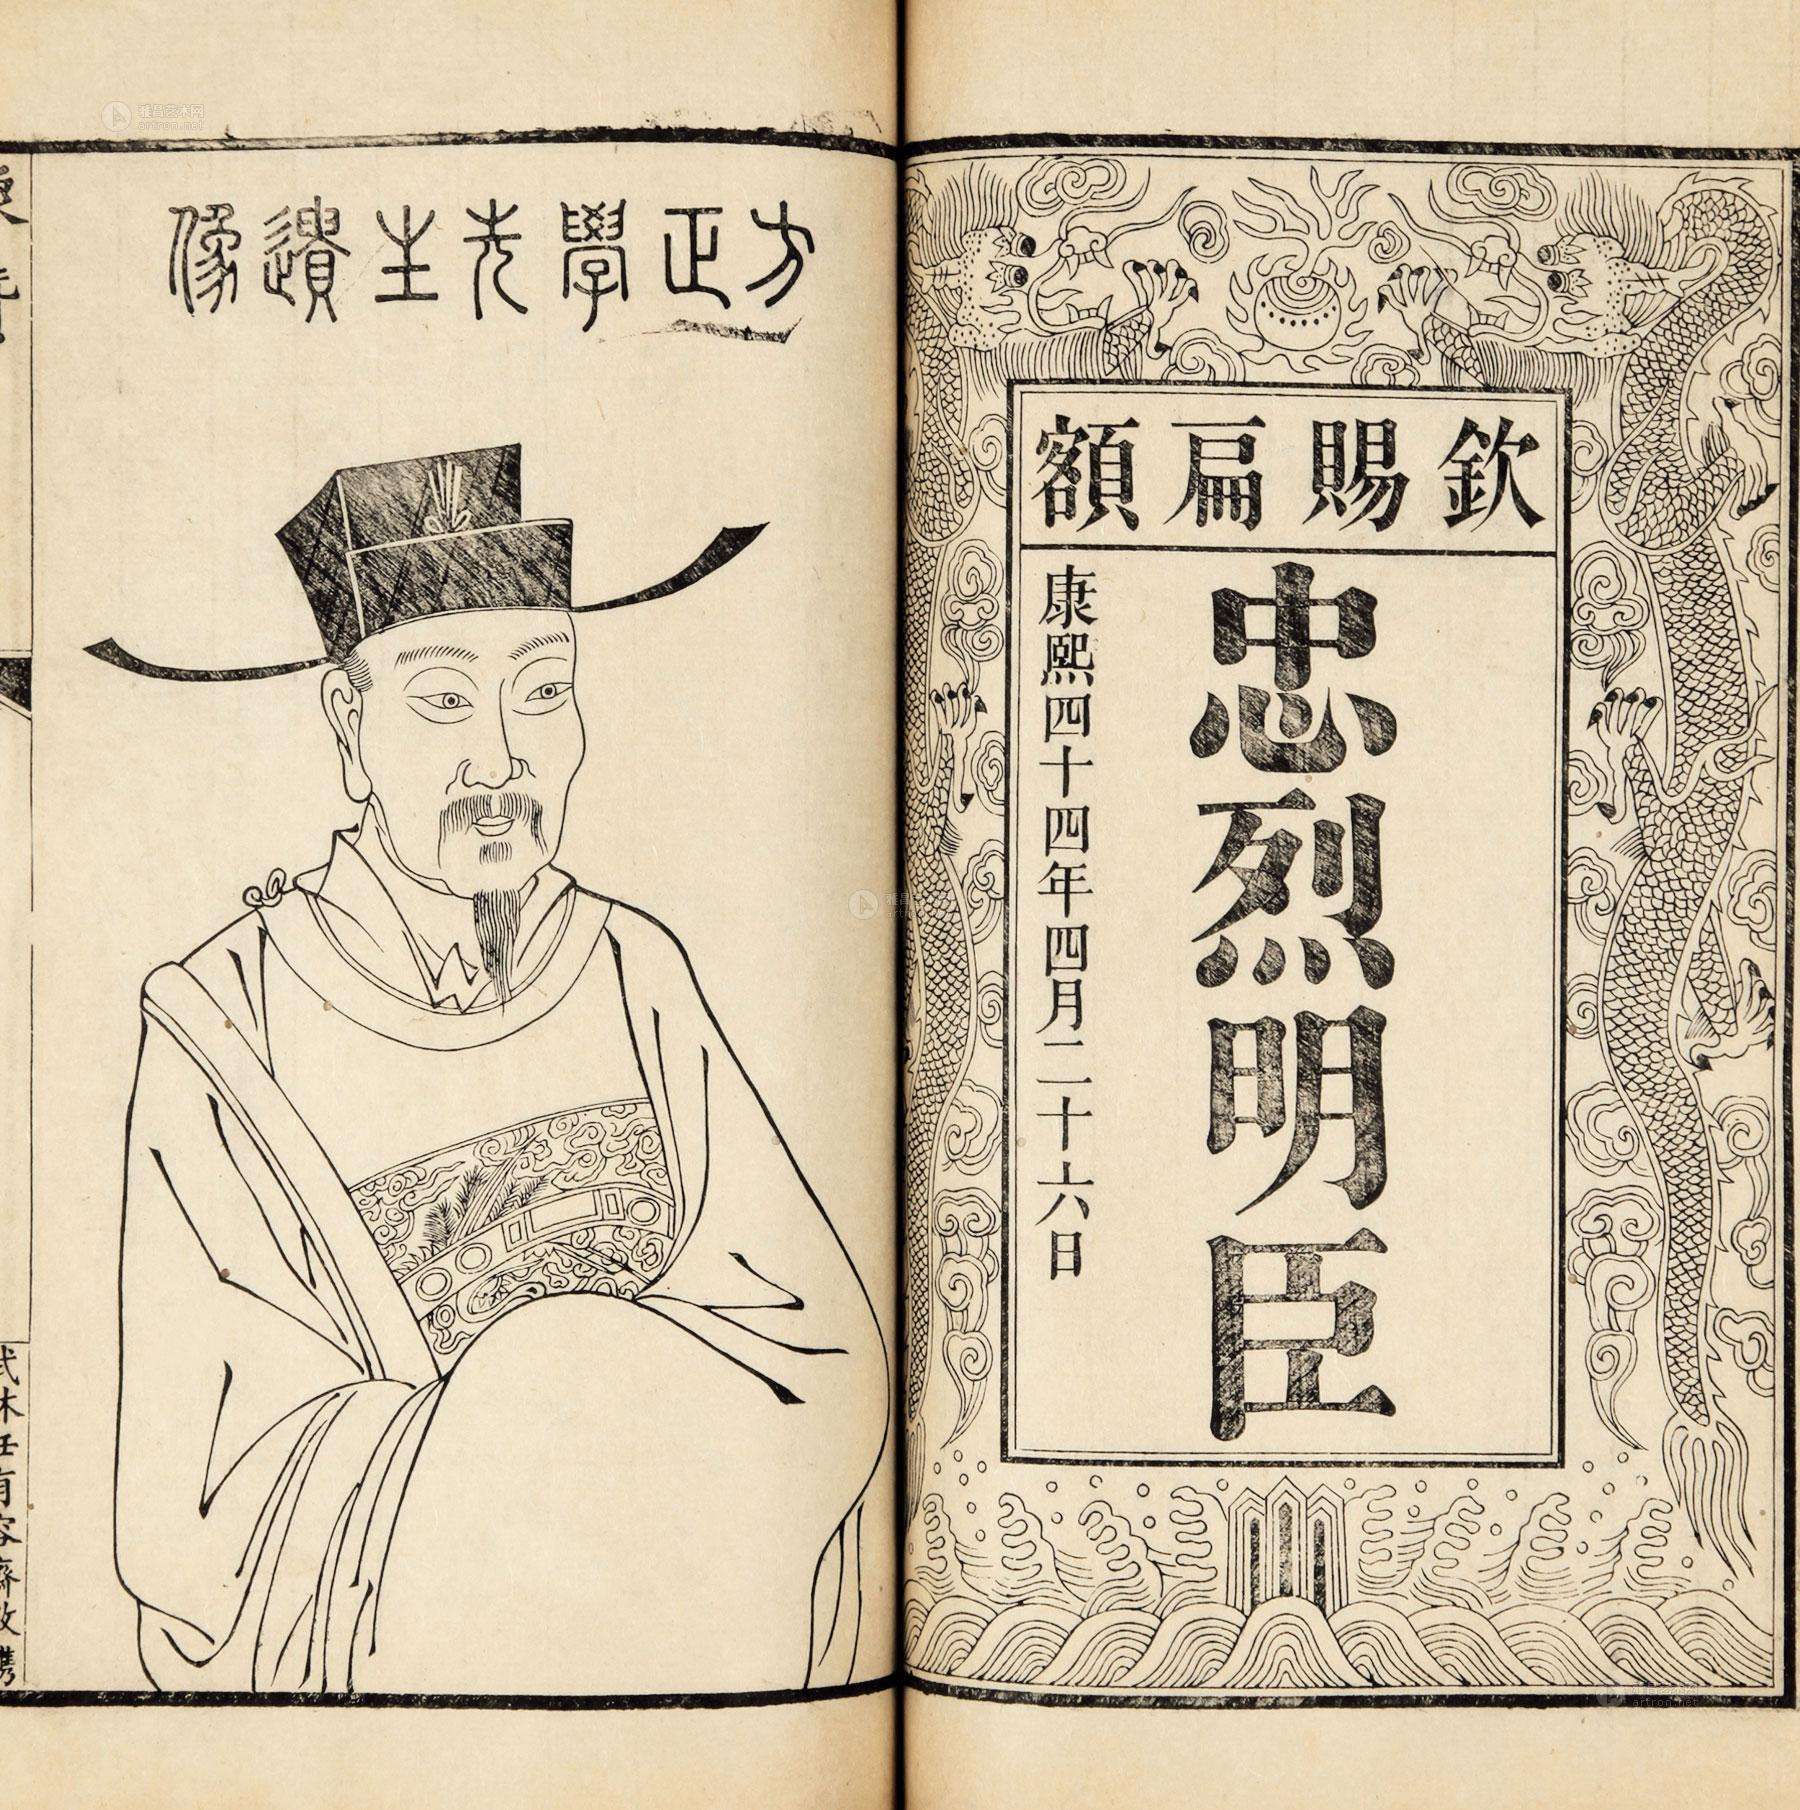 欽賜扁額
忠烈明臣
康熙四十四年四月二十六日
方正學先生遺像
武林任有容齋敬鐫
雅昌艺术网
artron.net